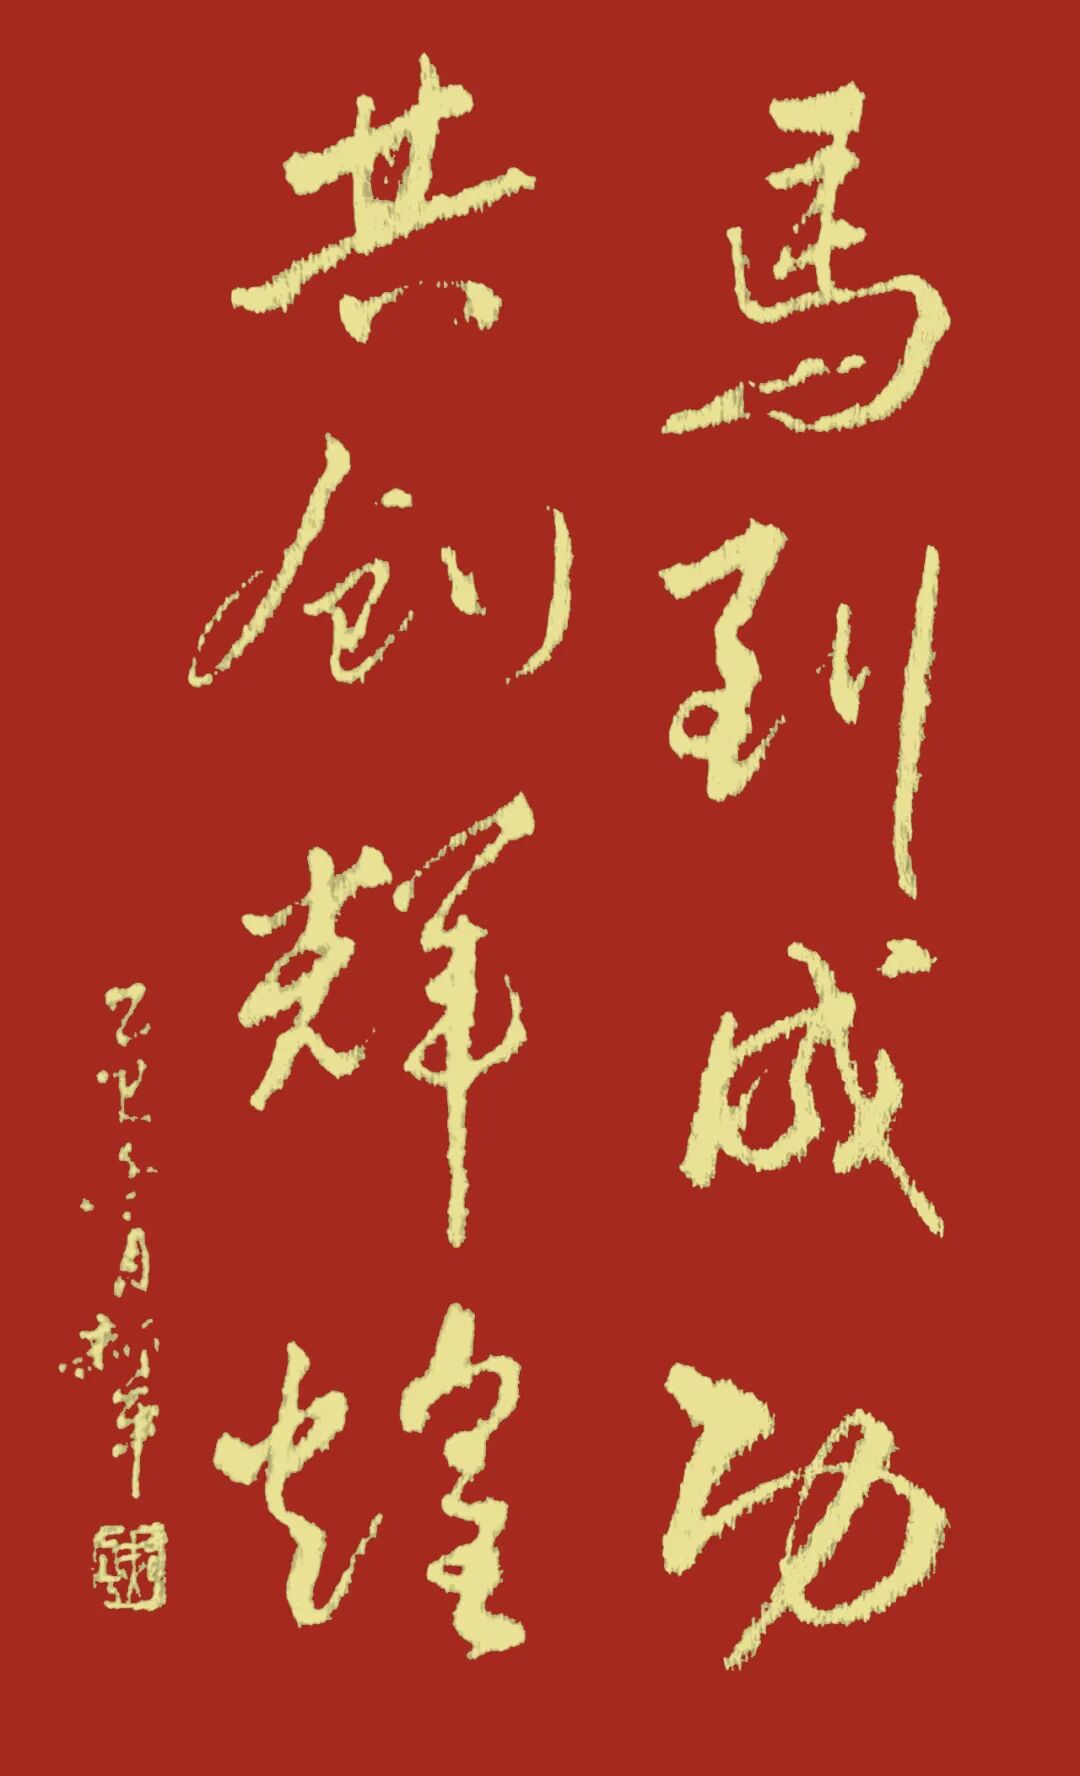 馬到成功
共创辉煌
乙巳六月